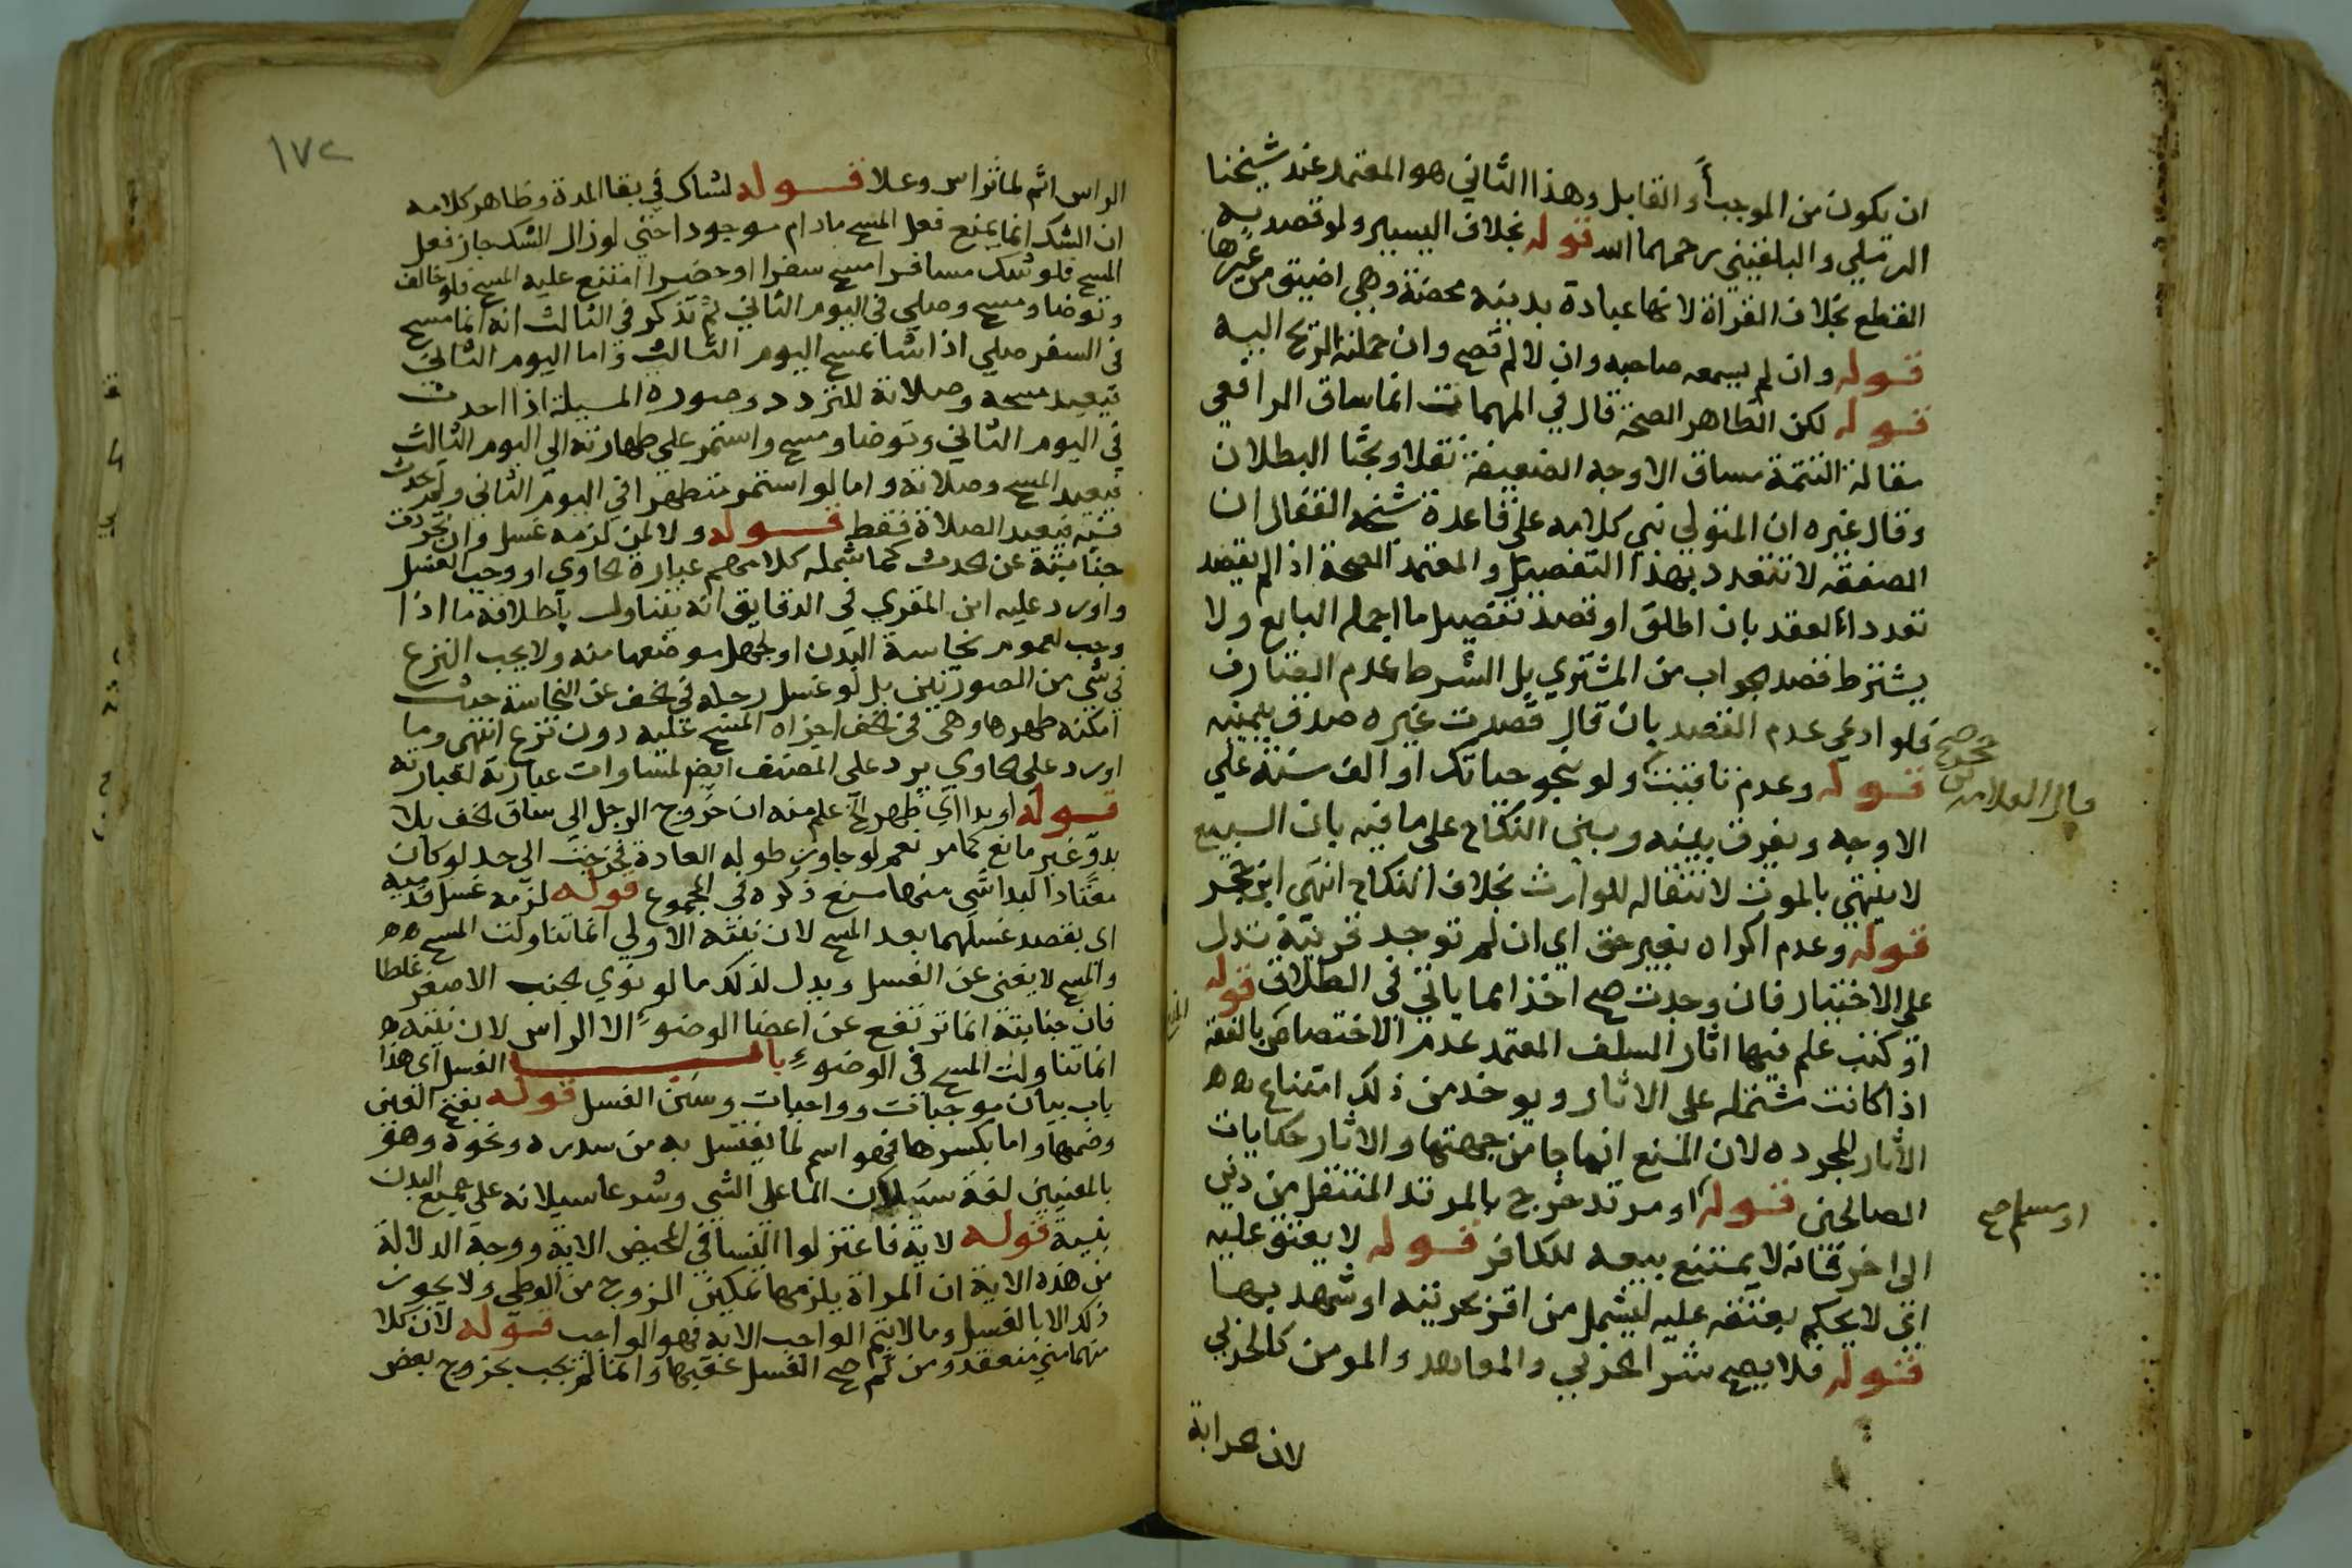 ان يكون من الموجب أو القابل وهذا الثاني هو المعتمد عند شيخنا
الرملي والبلقيني رحمهما الله قوله بخلاف اليسير ولو قصد به
القطع بخلاف القراة لانها عبادة بدنية محضة وهي اضيق من غيرها
قوله وان لم يسمعه صاحبه وان لا لم تصح وان حملته الريح اليه
قوله لكن الظاهر الصحة قال في المهمات انما ساق الرافعي
مقالة التتمة مساق الاوجه الضعيفة نقلا وبحثا البطلان
وقال غيره ان المتولي بني كلامه على قاعدة شيخه القفال ان
الصفقه لا تتعدد بهذا التفصيل والمعتمد الصحة اذا لم يقصد
تعدد العقد بان اطلق او قصد تفصيل ما اجمله البايع ولا
يشترط قصد الجواب من المشتري بل الشرط عدم الصارف
فلو ادعي عدم القصد بان قال قصدت غيره صدق بيمينه
صح
قال العلامه
قوله وعدم تاقيت ولو بنحو حياتك او الف سنة علي
الاوجه ويفرق بينه وبين النكاح على ما فيه بان البيع
لا ينتهي بالموت لانتقاله للوارث بخلاف النكاح انتهى ابن حجر
قوله وعدم اكراه بغير حق اي ان لم توجد قرينة تدل
على الاختيار فان وجدت صح اخذا مما ياتي في الطلاق قوله
او كتب علم فيها اثار السلف المعتمد عدم الاختصاص بالفقه
اذا كانت مشتملة على الاثار ويوخذ من ذلك امتناع
الاثار المجرده لان المنع انما جا من جهتها والاثار حكايات
الصالحين قوله او مرتد خرج بالمرتد المنتقل من دين
او مسلم صح
الى اخر فانه لا يمتنع بيعه للكافر قوله لا يعتق عليه
اي لا يحكم بعتقه عليه ليشمل من اقر بحريته او شهد بها
قوله فلا يصح شرا الحربي والمعاهد والمومن كالحربي
لان الحرابة
١٧٢
الراس اثم لماثر راس وعلا قوله لشاك في بقا المدة وظاهر كلامه
ان الشك انما يمنع فعل المسح مادام موجودا حتي لو زال الشك جاز فعل
المسح فلو شك مسافر امسح سفرا او حضرا امتنع عليه المسح فلو خالف
وتوضا ومسح وصلي في اليوم الثاني ثم تذكر في الثالث انه انما مسح
في السفر صلي اذا شا بمسح اليوم الثالث واما اليوم الثاني
فيعيد مسحه وصلاته للتردد وصورة المسيلة اذا احدث
في اليوم الثاني وتوضا ومسح واستمر على طهارته الي اليوم الثالث
فيعيد المسح وصلاته واما لو استمر متطهرا في اليوم الثاني ولم يحدث
فيه فيعيد الصلاة فقط قوله ولا لمن لزمه غسل وان تجردت
جنابته عن الحدث كما شمله كلامهم عبارة الحاوي او وجب الغسل
واورد عليه ابن المقري في الدقايق انه يتناول باطلاقه ما اذا
وجب لعموم نجاسة البدن او لجهل موضعها منه ولا يجب النزع
في شي من الصورتين بل لو غسل رجله في الخف عن النجاسة حيث
امكنه طهرها وهي في الخف اجزاه المسح عليه دون نزع انتهى وما
اورد على الحاوي يرد على المصنف ايضا لمساوات عبارته لعبارته
قوله او بدا اي ظهر الخ علم منه ان خروج الرجل الى ساق الخف بلا
بدو غير مانع كما مر نعم لو جاوز طوله العادة فخرجت الى حد لو كان
معتادا لبدا شي منها منع ذكره في المجموع قوله لزمه غسل قدميه
اي بقصد غسلهما بعد المسح لان نيته الاولي انما تناولت المسح
والمسح لا يغني عن الغسل ويدل لذلك ما لو نوي الجنب الاصغر غلطا
فان جنابته انما ترتفع عن اعضا الوضوء الا الراس لان نيته
انما تناولت المسح في الوضوء باب الغسل اي هذا
باب بيان موجبات وواجبات وسنن الغسل قوله بفتح الغين
وضمها واما بكسرها فهو اسم لما يغتسل به من سدره ونحوه وهو
بالمعنيين لغة سيلان الما على الشي وشرعا سيلانه على جميع البدن
بنية قوله لاية فاعتزلوا النسا في المحيض الاية ووجه الدلالة
من هذه الاية ان المراة يلزمها تمكين الزوج من الوطي ولا يجوز
ذلك الا بالغسل وما لا يتم الواجب الا به فهو الواجب قوله لان كلا
منهما مني منعقد ومن ثم صح الغسل عقبها وانما لم يجب بخروج بعض